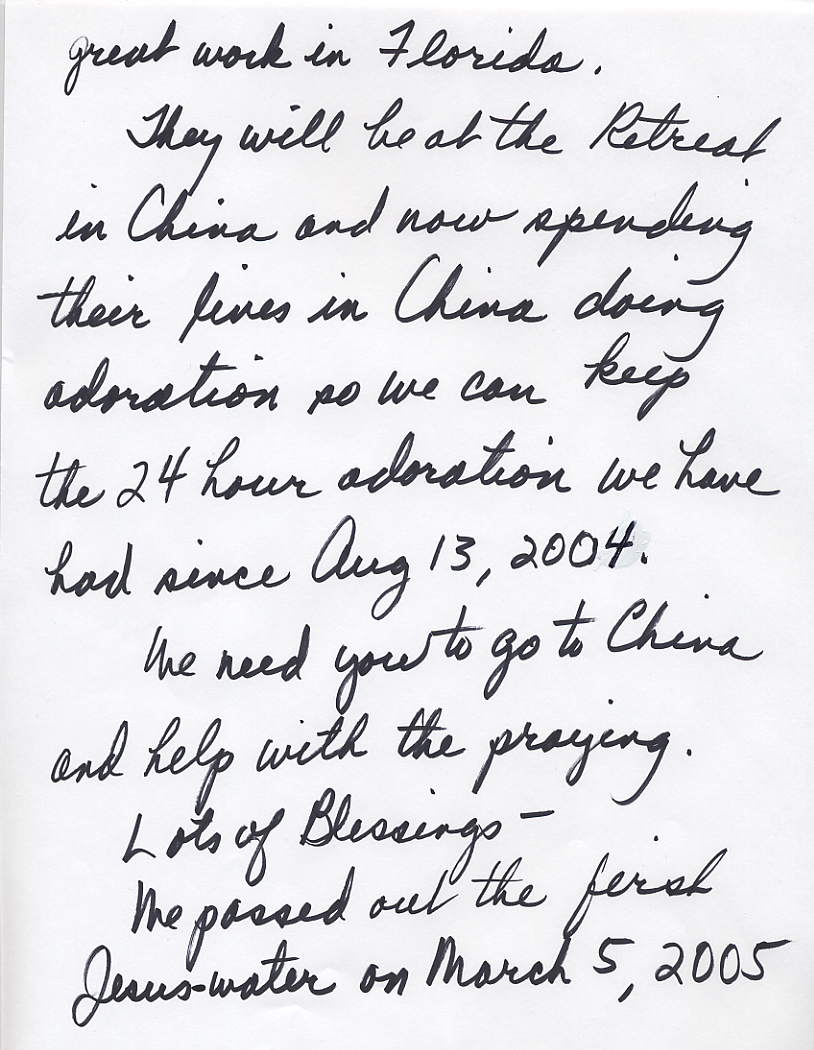 great work in Florida.
They will be at the Retreat
in China and now spending
their lives in China doing
adoration so we can keep
the 24 hour adoration we have
had since Aug 13, 2004.
We need you to go to China
and help with the praying.
Lots of Blessings -
We passed out the first
Jesus-water on March 5, 2005